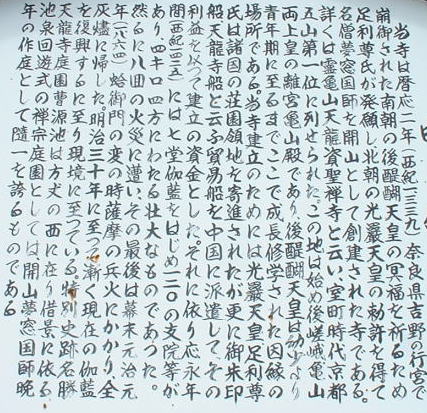 当寺は暦応二年(西紀一三三九)奈良県吉野の行宮で
崩御された南朝の後醍醐天皇の冥福を祈るため
足利尊氏が発願し北朝の光厳天皇の勅許を得て
名僧夢窓国師を開山として創建された寺である。
詳くは霊亀山天龍資聖禅寺と云い、室町時代京都
五山第一位に列せられた。この地は始め後嵯峨亀山
両上皇の離宮亀山殿であり、後醍醐天皇は幼少より
青年期に至るまでここで成長修学された因縁の
場所である。当寺建立のためには光厳天皇足利尊
氏は諸国の荘園領地を寄進されたが更に御朱印
船天龍寺船と云ふ貿易船を中国に派遣してその
利益を以って建立の資金とした。それに依り応永年
間(西紀一四三五)には七堂伽藍をはじめ一二〇の支院等が
あり、四キロ四方にわたる壮大なものであった。
然るに八回の火災に遭い、その最後は幕末元治元
年(一八六四)蛤御門の変の時薩摩の兵火にかかり全
灰燼に帰した。明治三十年に至って漸く現在の伽藍
を復興するに至り現境に至っている。特別史跡名勝
天龍寺庭園曹源池は方丈の西に在り借景に依る
池泉回遊式の禅宗庭園としては、開山夢窓国師晩
年の作庭として随一を誇るものである